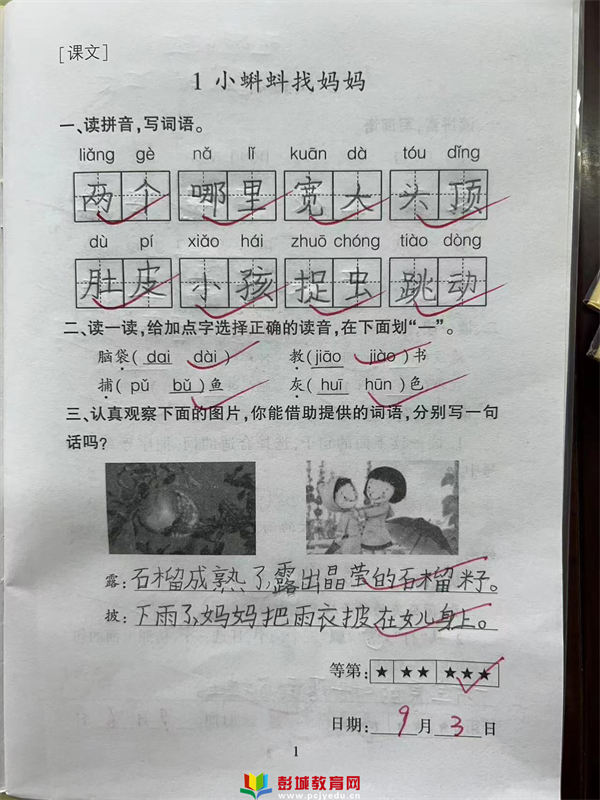 [课文]
1 小蝌蚪找妈妈
一、读拼音,写词语。
liǎng gè nǎ lǐ kuān dà tóu dǐng
两个 哪里 宽大 头顶
dù pí xiǎo hái zhuō chóng tiào dòng
肚皮 小孩 捉虫 跳动
二、读一读,给加点字选择正确的读音,在下面划“—”。
脑袋(dai dài) 教(jiāo jiào)书
捕(pǔ bǔ)鱼 灰(huī hūn)色
三、认真观察下面的图片,你能借助提供的词语,分别写一句
话吗?
露:石榴成熟了,露出晶莹的石榴籽。
披:下雨了,妈妈把雨衣披在女儿身上。
等第: ★ ★★ ★★★
日期: 9 月 3 日
1
彭城教育网
www.pcjyedu.cn